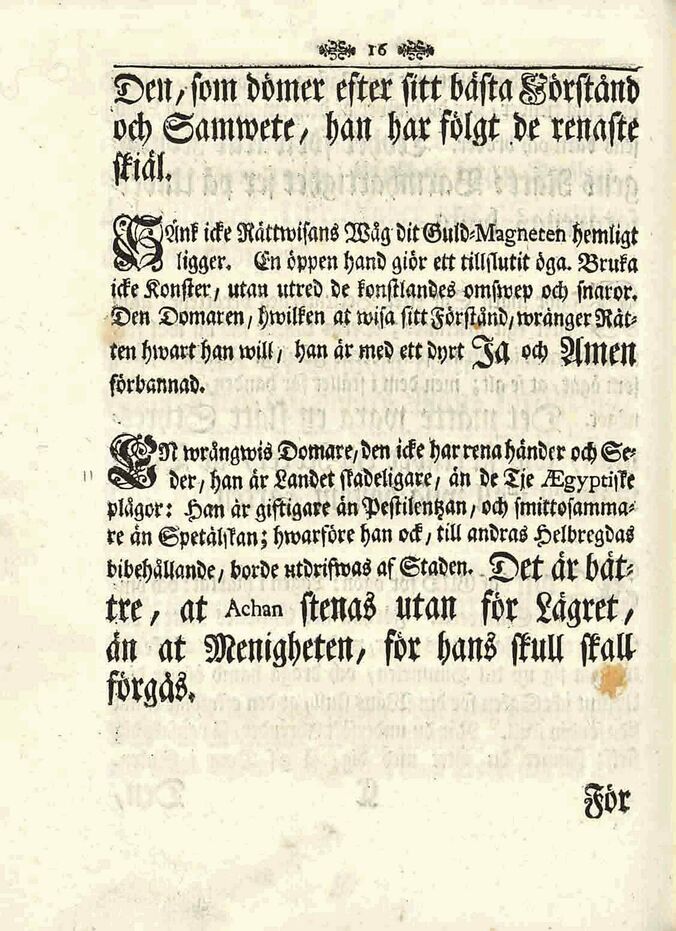 16
Den, som dömer efter sitt bästa Förstånd
och Samwete, han har fölgt de renaste
skiäl.
SÄnk icke Rättwisans Wåg dit Guld-Magneten hemligt
ligger. En öppen hand giör ett tillslutit öga. Bruka
icke Konster, utan utred de konstlandes omswep och snaror.
Den Domaren, hwilken at wisa sitt Förstånd, wränger Rät-
ten hwart han will, han är med ett dyrt Ja och Amen
förbannad.
EN wrångwis Domare, den icke har rena händer och Se-
der, han är Landet skadeligare, än de Tje Ægyptiske
plågor: Han är giftigare än Pestilentzan, och smittosamma-
re än Spetälskan; hwarföre han ock, till andras Helbregdas
bibehållande, borde utdrifwas af Staden. Det är bät-
tre, at Achan stenas utan för Lägret,
än at Menigheten, för hans skull skall
förgås.
För